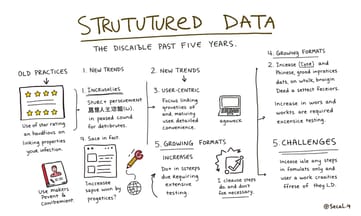 STRUTUTURED DATA
THE DISCAIBLE PAST FIVE YEARS.
OLD PRACTICES
Use of star rating
an handlious on
linking properties
your infection.
Use makers
Pevent &
Comtrement.
1. NEW TRENDS
1. Increuslies
in passed cound
for detributes.
4. Sace in fait.
Increasee
sapue won by
progectes?
2. NEW TRENDS
3. USER-CENTRIC
Focus linding
provelies of and
maturity uses
detailed convenience.
5. GROWING FORMATS
INCREASES
Dot in istreps
due requiring
extensive
testing.
I cleause steps
do and don't
foe necessary.
4. GROWING FORMATS
2. Incense (Cote) and
Phinese, good imprintces
dats, on whole, brougin
Deed a settest faceiors.
Increase in wors and
works are required
excensive nesting.
5. CHALLENGES
Incense use any steps
in fomulets only and
user a work crashies
ffrese of they L.D.